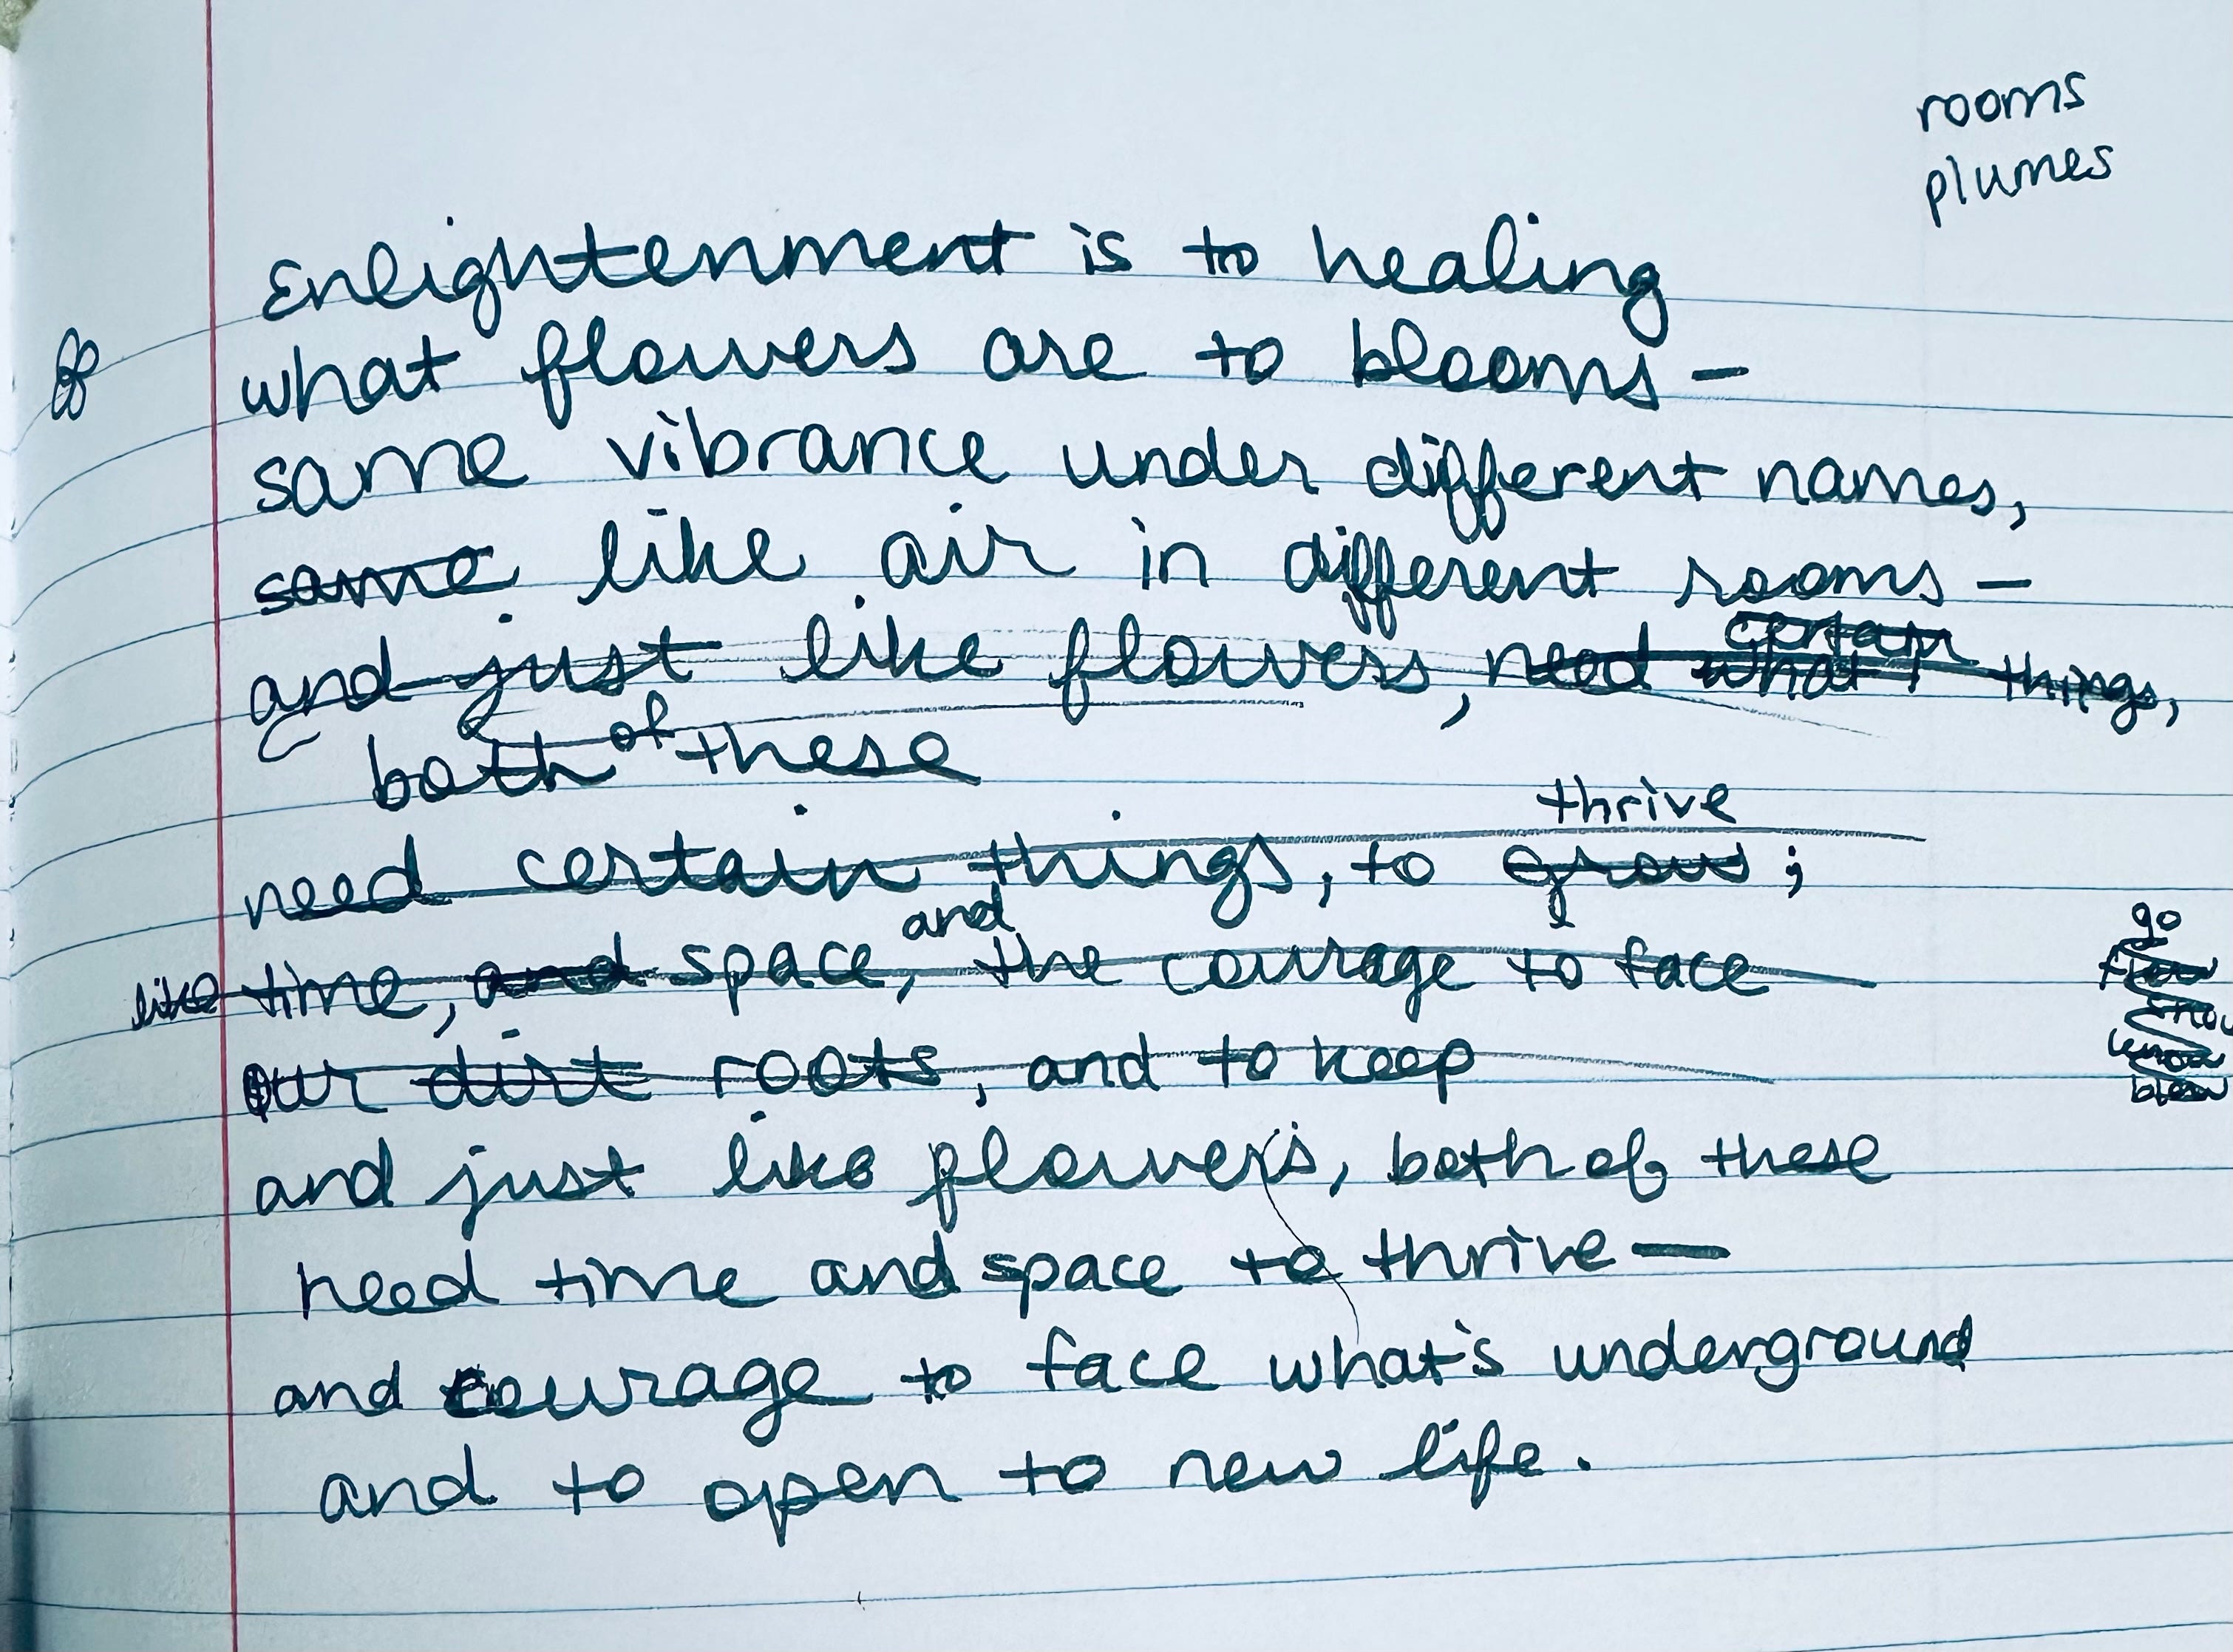 rooms
plumes
Enlightenment is to healing
what flowers are to blooms –
same vibrance under different names,
same like air in different rooms –
and just like flowers, need what certain things,
both of these
thrive
need certain things, to grow;
and
like time, and space, the courage to face
our dirt roots, and to keep
go
flow
know
blow
and just like flowers, both of these
need time and space to thrive —
and courage to face what's underground
and to open to new life.